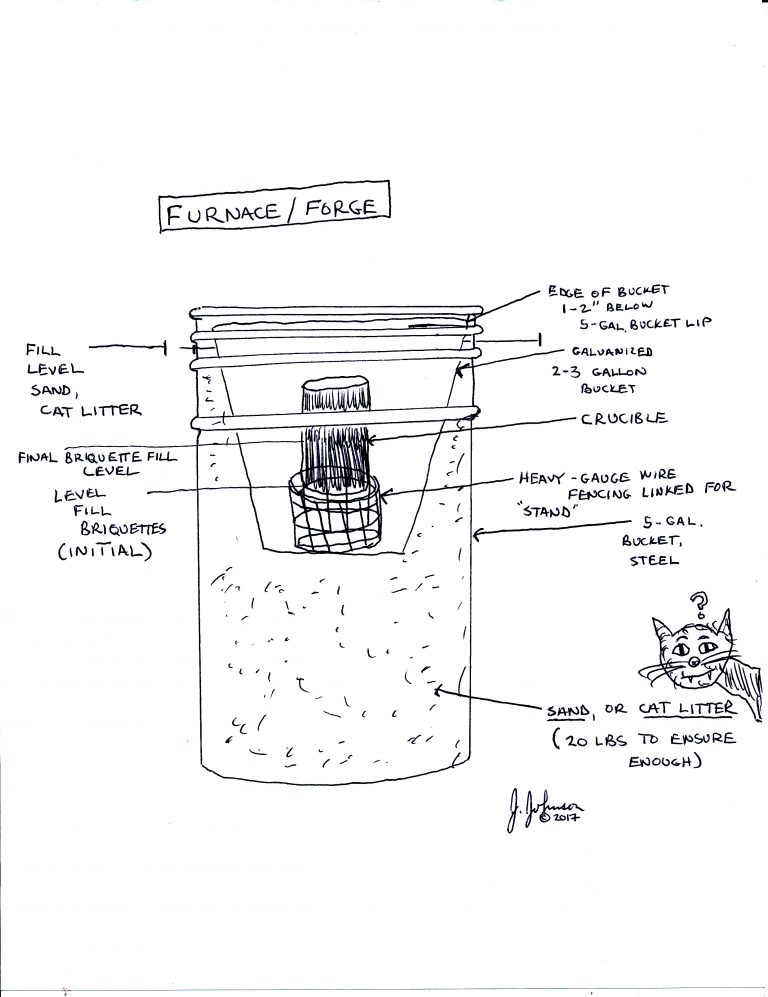 FURNACE/FORGE
EDGE OF BUCKET
1-2" BELOW
5-GAL. BUCKET LIP
FILL
LEVEL
SAND,
CAT LITTER
GALVANIZED
2-3 GALLON
BUCKET
CRUCIBLE
FINAL BRIQUETTE FILL
LEVEL
LEVEL
FILL
BRIQUETTES
(INITIAL)
HEAVY-GAUGE WIRE
FENCING LINKED FOR
"STAND"
5-GAL.
BUCKET,
STEEL
?
SAND, OR CAT LITTER
(20 LBS TO ENSURE
ENOUGH)
J. Johnson
©2017